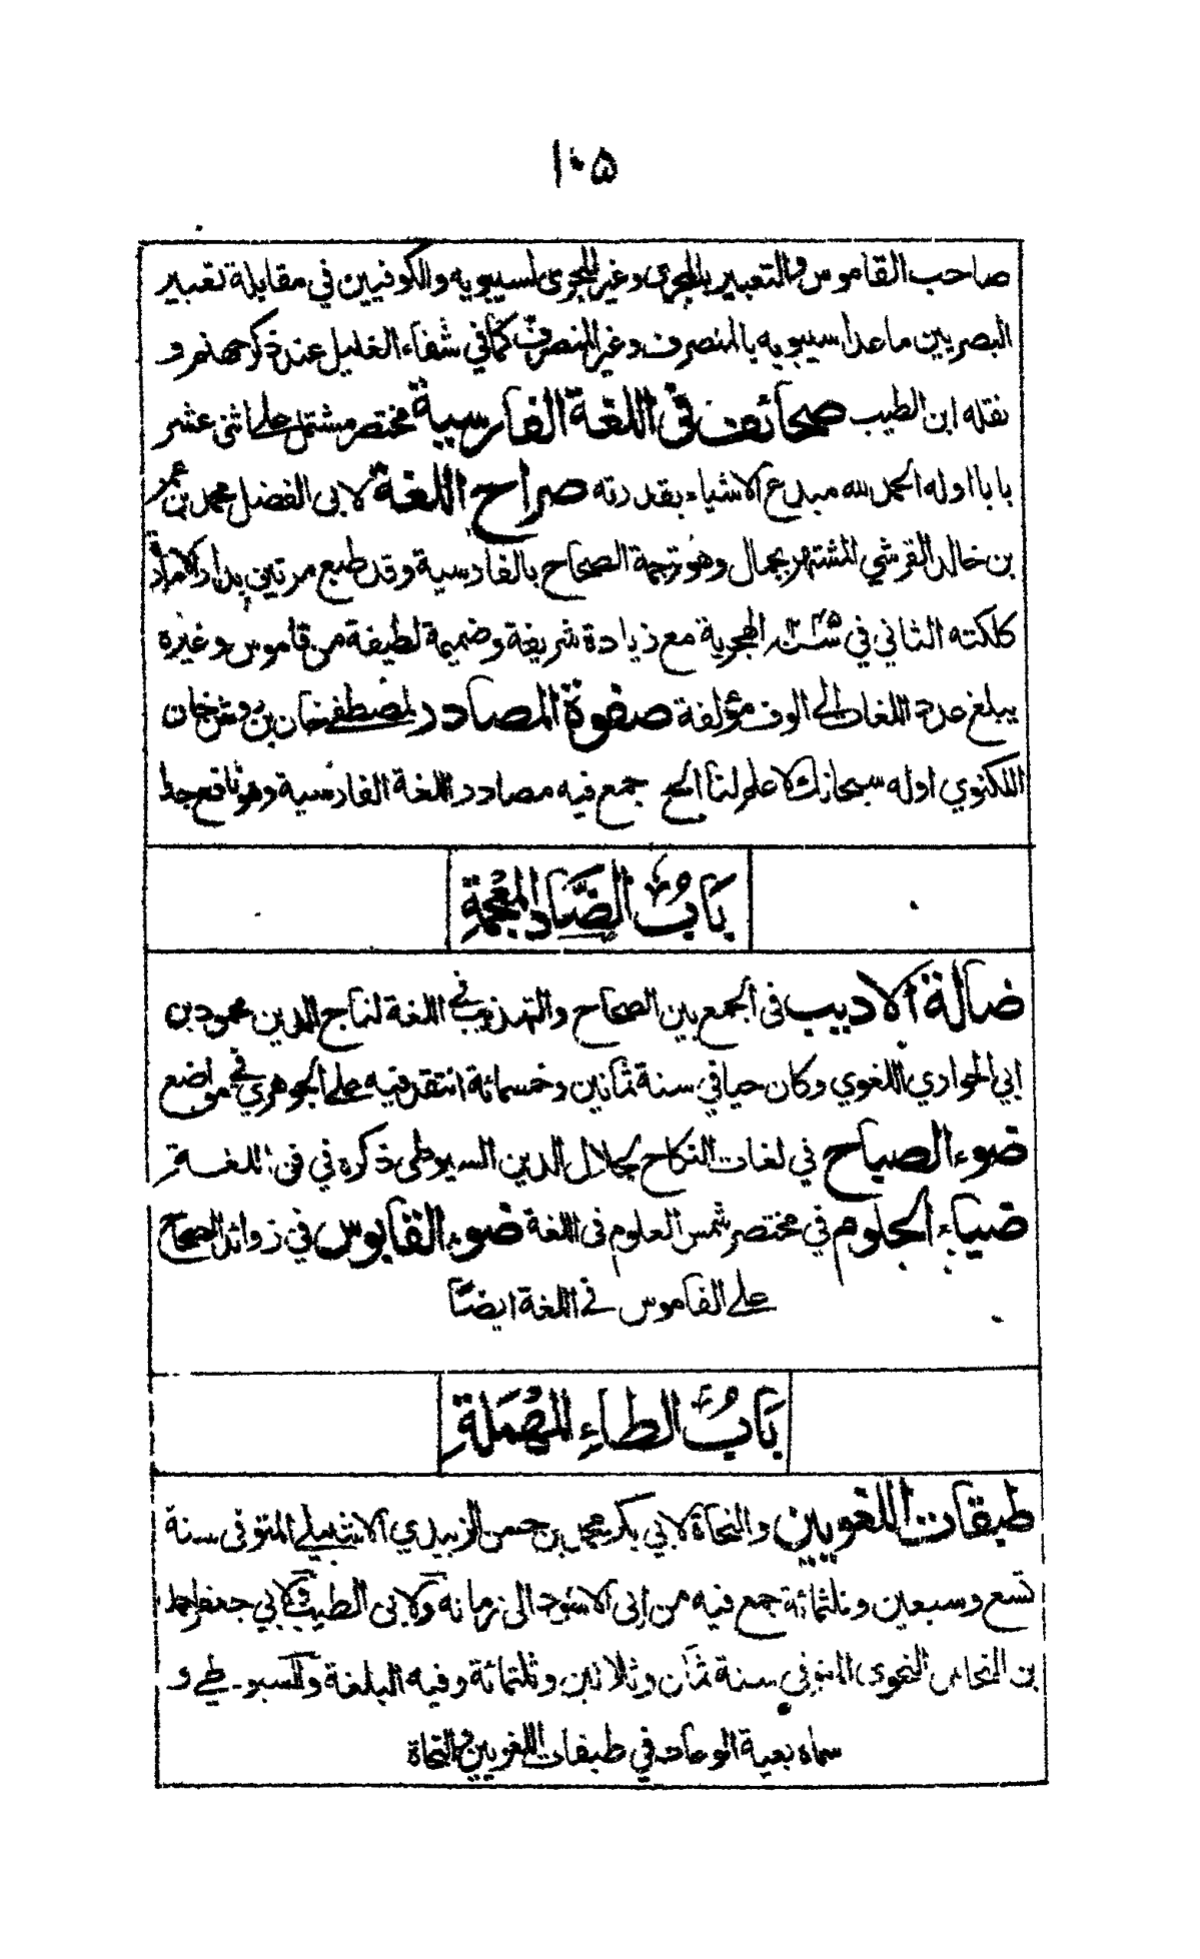 ١٠۵
صاحب القاموس والتعبير بالمجرى وغير المجرى لسيبويه والكوفيين في مقابلة تعبير
البصريين ماعدا سيبويه بالمنصرف وغير المنصرف كما في شفاء الغليل عند ذكر جهنم و
نقله ابن الطيب صحائف في اللغة الفارسية مختصر مشتمل على اثنى عشر
بابا اوله الحمد لله مبدع الاشياء بقدرته صراح اللغة لابى الفضل محمد بن عمر
بن خالد القرشي المشتهر بجمال وهو ترجمة الصحاح بالفارسية وقد طبع مرتين بدار الامارة
كلكته الثاني في سنة الهجرية مع زيادة شريفة وضميمة لطيفة من قاموس وغيره
يبلغ عدد اللغات الى الوف مؤلفة صفوة المصادر لمصطفى خان بن روشن خان
اللكنوي اوله سبحانك لا علم لنا الخ جمع فيه مصادر اللغة الفارسية وهو نافع جدا
بَابُ الضَّادِ المُعْجَمَةِ
ضالة الاديب في الجمع بين الصحاح والتهذيب في اللغة لتاج الدين محمود بن
ابي الحواري اللغوي وكان حيا في سنة ثمانين وخمسمائة انتقد فيه على الجوهري في مواضع
ضوء الصباح في لغات النكاح لجلال الدين السيوطى ذكره في فن اللغة
ضياء الحلوم في مختصر شمس العلوم في اللغة ضوء القابوس في زوائد الصحاح
على القاموس في اللغة ايضًا
بَابُ الطاءِ المُهْمَلَةِ
طبقات اللغويين والنحاة لابي بكر محمد بن حسن الزبيدي الاشبيلي المتوفى سنة
تسع وسبعين وثلثمائة جمع فيه من ابى الاسود الى زمانه ولابى الطيب ولابي جعفر احمد
بن النحاس النحوى المتوفى سنة ثمان وثلاثين وثلثمائة وفيه البلغة وللسيوطي و
سماه بغية الوعاة في طبقات اللغويين والنحاة